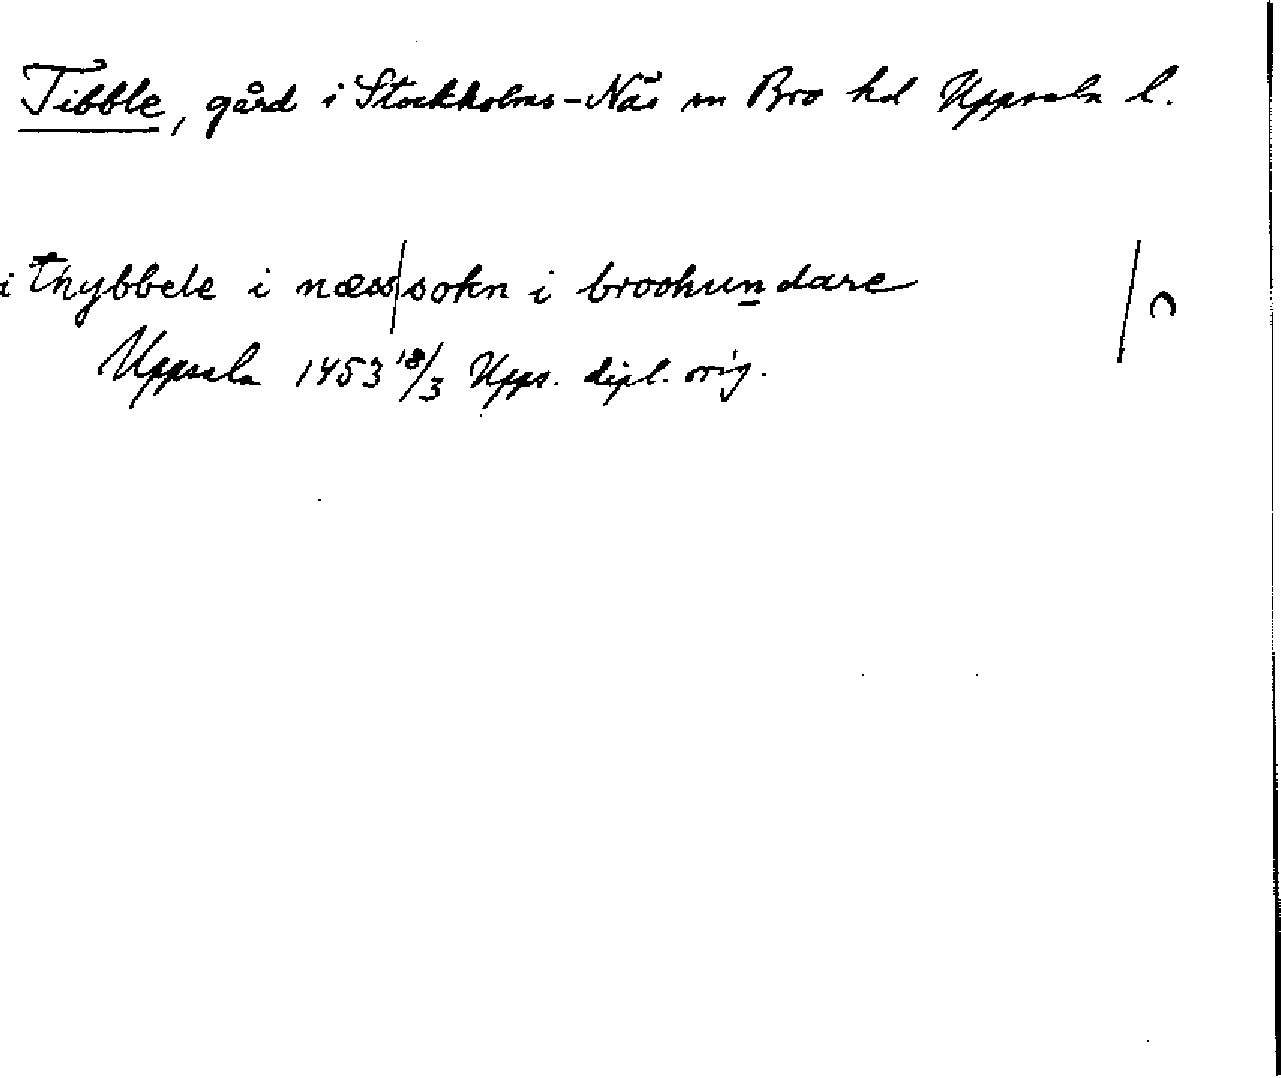 Tibble, gård i Stockholms-Näs sn Bro hd Uppsala l.
i thybbele i næss|sokn i broohundare
Uppsala 1453 18/3 Upps. dipl. orig.